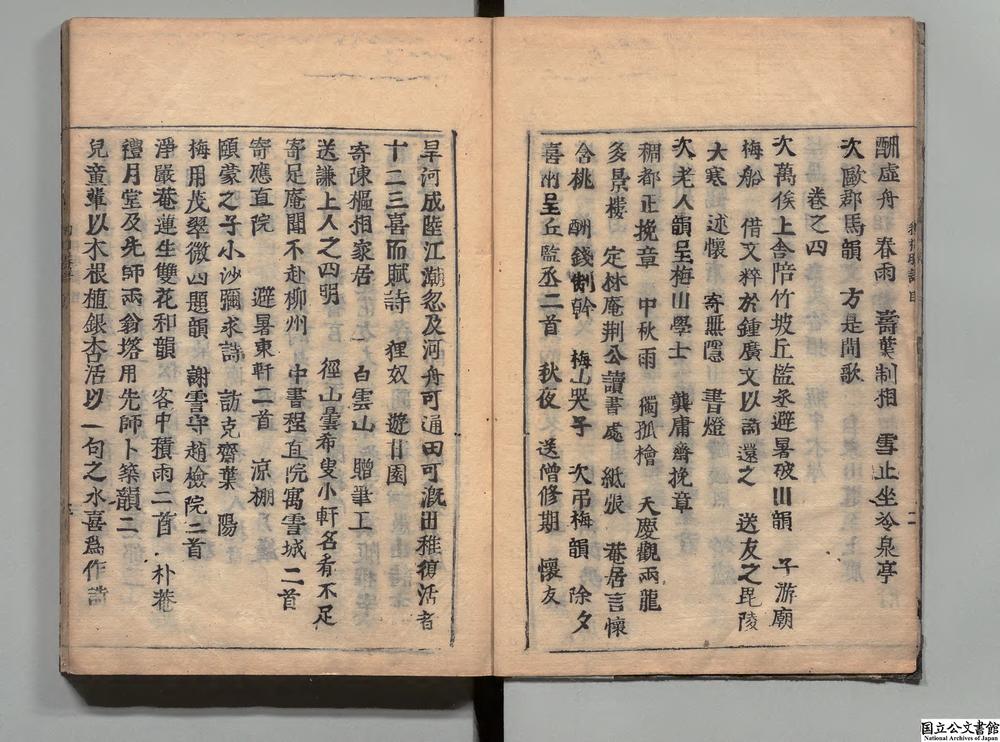 酬虛舟　春雨　壽葉制相　雪止坐冷泉亭
次歐郡馬韻　方是閒歌
卷之四
次萬俟上舍陪竹坡丘監丞避暑破山韻　子游廟
梅船　借文粹於鍾廣文以詩還之　送友之毘陵
大寒　述懷　寄無隱　書燈
次老人韻呈梅川學士　龔庸齋挽章
稠都正挽章　中秋雨　獨孤檜　天慶觀兩龍
多景樓　定林庵荆公讀書處　紙張　菴居言懷
含桃　酬錢制幹　梅山哭子　次弔梅韻　除夕
喜雨呈丘監丞二首　秋夜　送僧修期　懷友
旱河成陸江潮忽及河舟可通田可溉田稚復活者
十二三喜而賦詩　狸奴　遊甘園
寄陳樞相家居　白雲山　贈筆工
送謙上人之四明　徑山曇希叟小軒名看不足
寄足庵聞不赴柳州　中書程直院寓雪城二首
寄應直院　避暑東軒二首　凉棚
頤蒙之子小沙彌求詩　訪克齋葉　陽
梅用茂翠微四題韻　謝雪守趙檢院二首
淨嚴菴蓮生雙花和韻　客中積雨二首　朴菴
禮月堂及先師兩翁塔用先師卜築韻二
兒童輩以木根植銀杏活以一句之水喜爲作詩
二
国立公文書館
National Archives of Japan